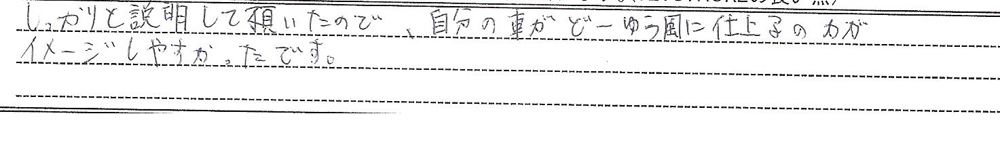 しっかりと説明して頂いたので、自分の車がどーゆう風に仕上るのかが
イメージしやすかったです。